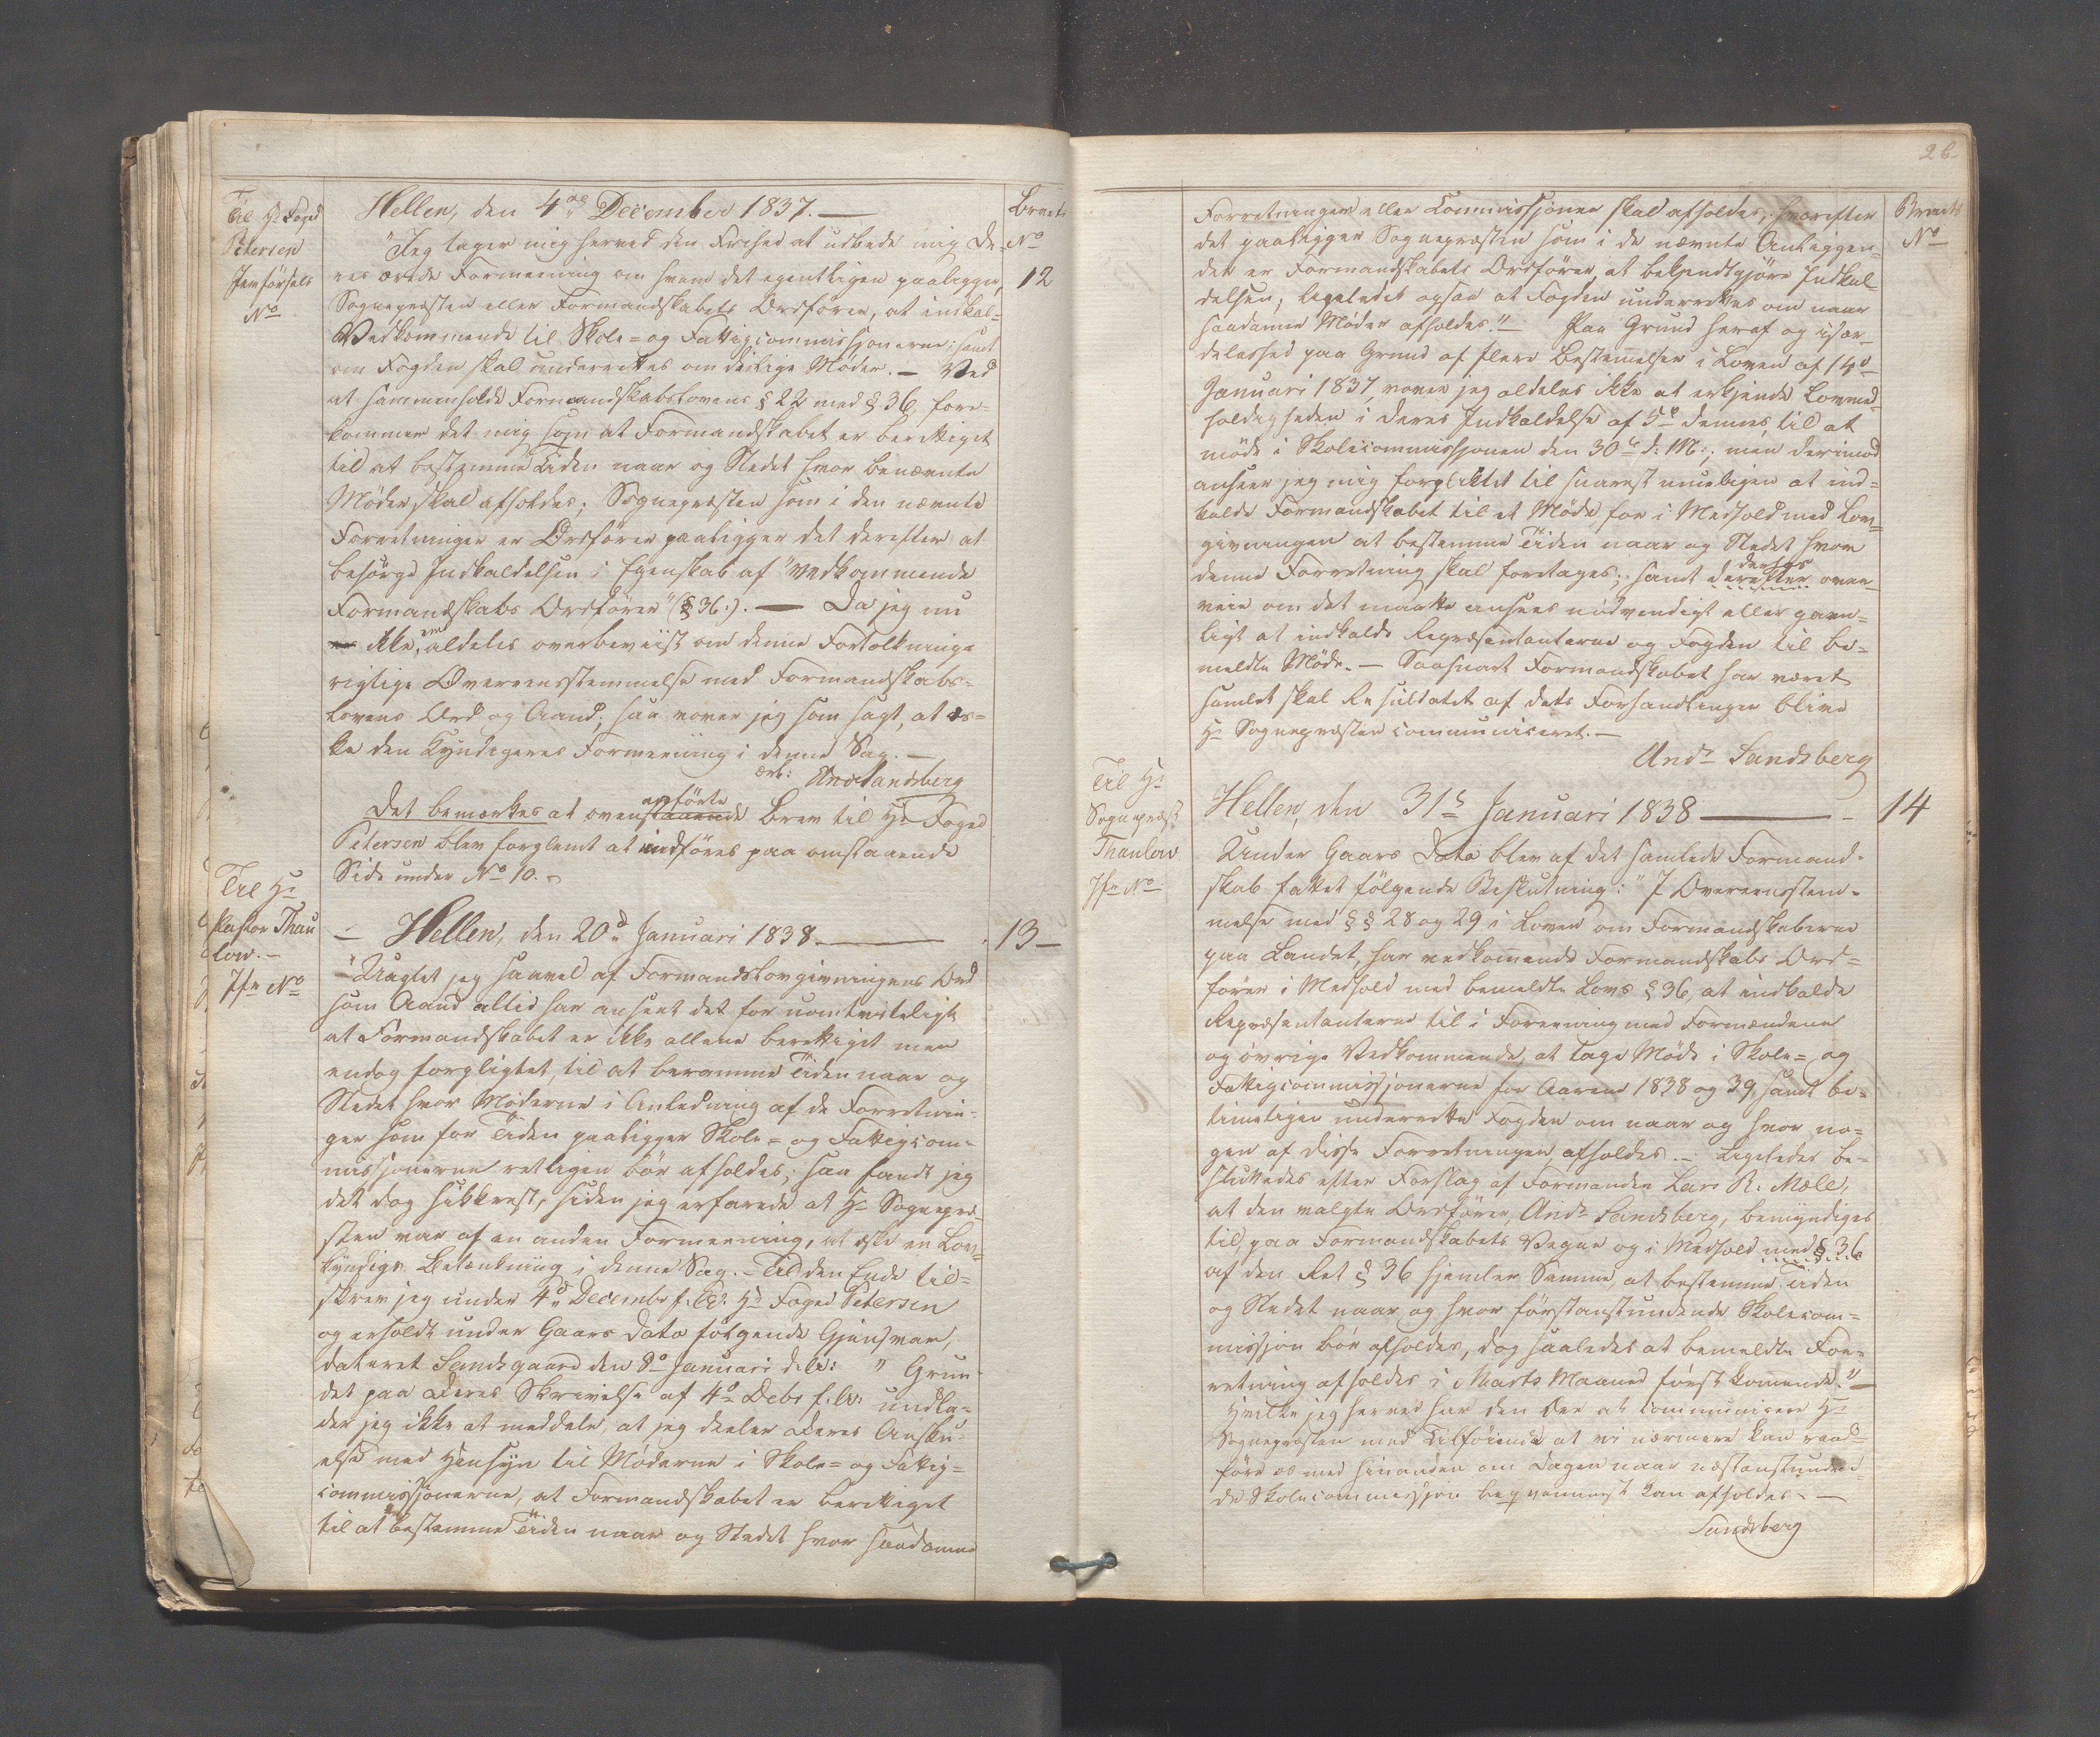 Til Hr Foged
Petersen
Jemförsels
No
Brevets
No
12
Hellen, den 4de December 1837. —
"Jeg tager mig herved den Frihed at udbede mig De-
res ærede Formeening om hvem det egentligen paaligger,
Sognepræsten eller Formandskabets Ordförer, at indkal-
Vedkommende til Skole- og Fattigcommissjonerne; samt
om Fogden skal underrettes om deslige Möder. — Ved
at sammenholde Formandskabslovens § 22 med § 36, fore-
kommer det mig som at Formandskabet er berettiget
til at bestemme Tiden naar og Stedet hvor benævnte
Möder skal afholdes; Sognepræsten som i den nævnte
Forretninger er Ordförer paaligger det derefter at
besörge Indkaldelsen i Egenskab af "Vedkommende
Formandskabs Ordförer" (§ 36.). — Da jeg nu
ikke er aldeles overbeviist om denne Fortolknings
rigtige Overeensstemmelse med Formandskabs-
Lovens Ord og Aand; saa vover jeg som sagt, at æs-
ke den Kyndigeres Formeening i denne Sag. —
ærb: And Sandsberg
Det bemærkes at ovenanförte Brev til Hr Foged
Petersen blev forglemt at indföres paa omstaaende
Side under No 10. —
Til Hr
Pastor Thau
low. —
Jfr No
— Hellen, den 20de Januari 1838. —
13 —
"Uagtet jeg saavel af Formandslovgivningens Ord
som Aand altid har anseet det for uomtvisteligt
at Formandskabet er ikke allene berettiget men
endog forpligtet, til at beramme Tiden naar og
Stedet hvor Möderne i Anledning af de Forretnin-
ger som for Tiden paaligger Skole- og Fattigcom-
missjonerne retligen bör afholdes; saa fandt jeg
det dog sikkrest, siden jeg erfarede at Hr Sognepræ-
sten var af en anden Formeening, at æske en Lov-
kyndigs Betænkning i denne Sag. — Til den Ende til-
skrev jeg under 4de Decembr f. A. Hr Foged Petersen
og erholdt under Gaars Dato fölgende Gjensvar,
dateret Sandsgaard den 8de Januari d. A: " Grun-
det paa Deres Skrivelse af 4de Debr f. A. undla-
der jeg ikke at meddele, at jeg deeler Deres Ansku-
else med Hensyn til Möderne i Skole- og Fattig-
commissjonerne, at Formandskabet er berettiget
til at bestemme Tiden naar og Stedet hvor saadanne
26
Brevets
No
Forretninger eller Commissjoner skal afholdes, hvorefter
det paaligger Sognepræsten som i de nævnte Anliggen-
der er Formandskabets Ordförer, at bekjendtgjöre Indkal-
delsen; ligeledes ogsaa at Fogden underrettes om naar
saadanne Möder afholdes." — Paa Grund heraf og især-
deleshed paa Grund af flere Bestemmelser i Loven af 14de
Januari 1837, vover jeg aldeles ikke at erkjende Lovmed-
holdigheden i deres Indkaldelse af 5te dennes, til at
möde i Skolecommissjonen den 30te d: M:, men derimod
anseer jeg mig forpligtet til snarest mueligen at ind-
kalde Formandskabet til et Möde, for i Medhold med Lov-
givningen at bestemme Tiden naar og Stedet hvor
denne Forretning skal foretages; samt derefter derhos over-
veie om det maatte ansees nödvendigt eller gavn-
ligt at indkalde Repræsentanterne og Fogden til be-
meldte Möde. — Saasnart Formandskabet har været
samlet skal Resultatet af dets Forhandlinger blive
Hr Sognepræsten communiceret. —
Andr Sandsberg
Til Hr
Sognepræst
Thaulow
Jfr No
Hellen, den 31te Januari 1838 —
14
Under Gaars Dato blev af det samlede Formand-
skab fattet fölgende Beslutning: "I Overeensstem-
melse med §§ 28 og 29 i Loven om Formandskaberne
paa Landet, har vedkommende Formandskabs Ord-
förer i Medhold med bemeldte Lovs § 36, at indkalde
Repræsentanterne til i Forening med Formændene
og övrige Vedkommende, at tage Möde i Skole- og
Fattigcommissjonerne for Aarene 1838 og 39, samt be-
timeligen underrette Fogden om naar og hvor no-
gen af disse Forretninger afholdes. — Ligeledes be-
sluttedes efter Forslag af Formanden Lars R. Mæle,
at den valgte Ordförer, Andr Sandsberg, bemyndiges
til, paa Formandskabets Vegne og i Medhold med § 36
af den Ret § 36 hjemler Samme, at bestemme Tiden
og Stedet naar og hvor förstanstundende Skolecom-
missjon bör afholdes, dog saaledes at bemeldte For-
retning afholdes i Marts Maaned förstkommende." —
Hvilke jeg herved har den Ære at communicere Hr
Sognepræsten med Tilföiende at vi nærmere kan raad-
före os med hinanden om Dagen naar næstanstunden-
de Skolecommissjon beqvemmest kan afholdes. —
Sandsberg